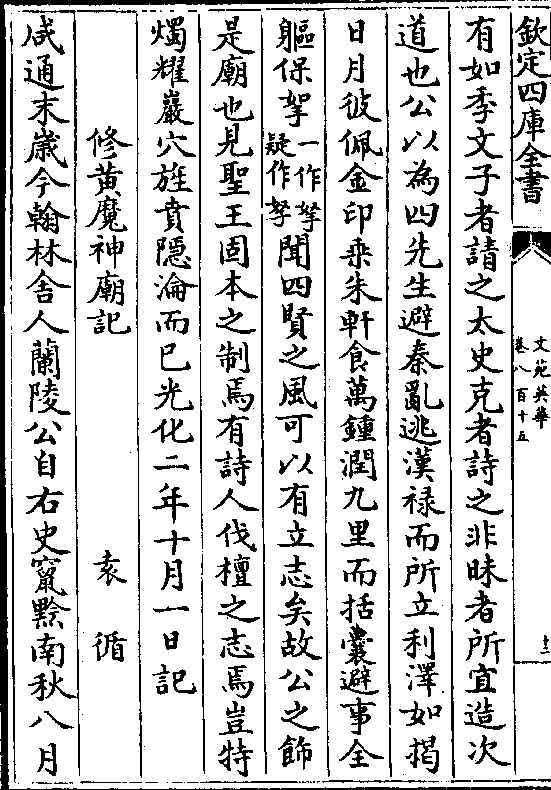 欽定四庫全書
文苑英華
卷八百十五
十三
有如季文子者請之太史克者詩之非昧者所宜造次
道也公以為四先生避秦亂逃漢禄而所立利澤如揭
日月彼佩金印乘朱軒食萬鍾潤九里而括囊避事全
軀保孥一作拏疑作帑聞四賢之風可以有立志矣故公之飾
是廟也見聖王固本之制焉有詩人伐檀之志焉豈特
燭耀巖穴旌賁隠淪而已光化二年十月一日記
修黄魔神廟記
袁循
咸通末歲今翰林舍人蘭陵公自右史竄黔南秋八月